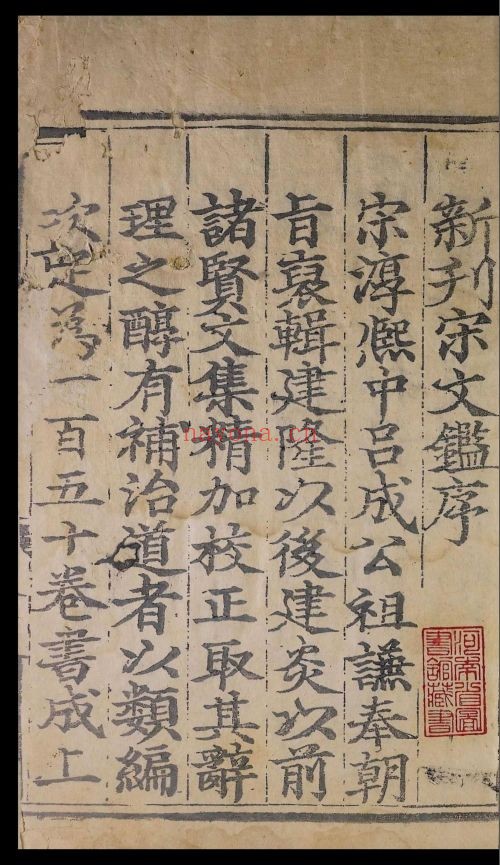 新刋宋文鑑序
宋淳熈中呂成公祖謙奉朝
旨裒輯建隆以後建炎以前
諸賢文集精加校正取其辭
理之醇有補治道者以類編
次定為一百五十卷書成上
河南省圖
書館藏書